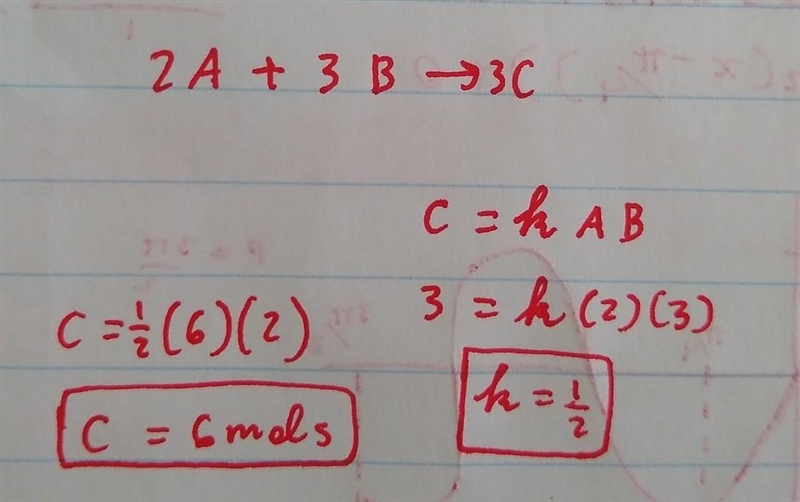 2A + 3B → 3C
C = k A B
3 = k (2)(3)
k = 1/2
C = 1/2 (6)(2)
C = 6 mols